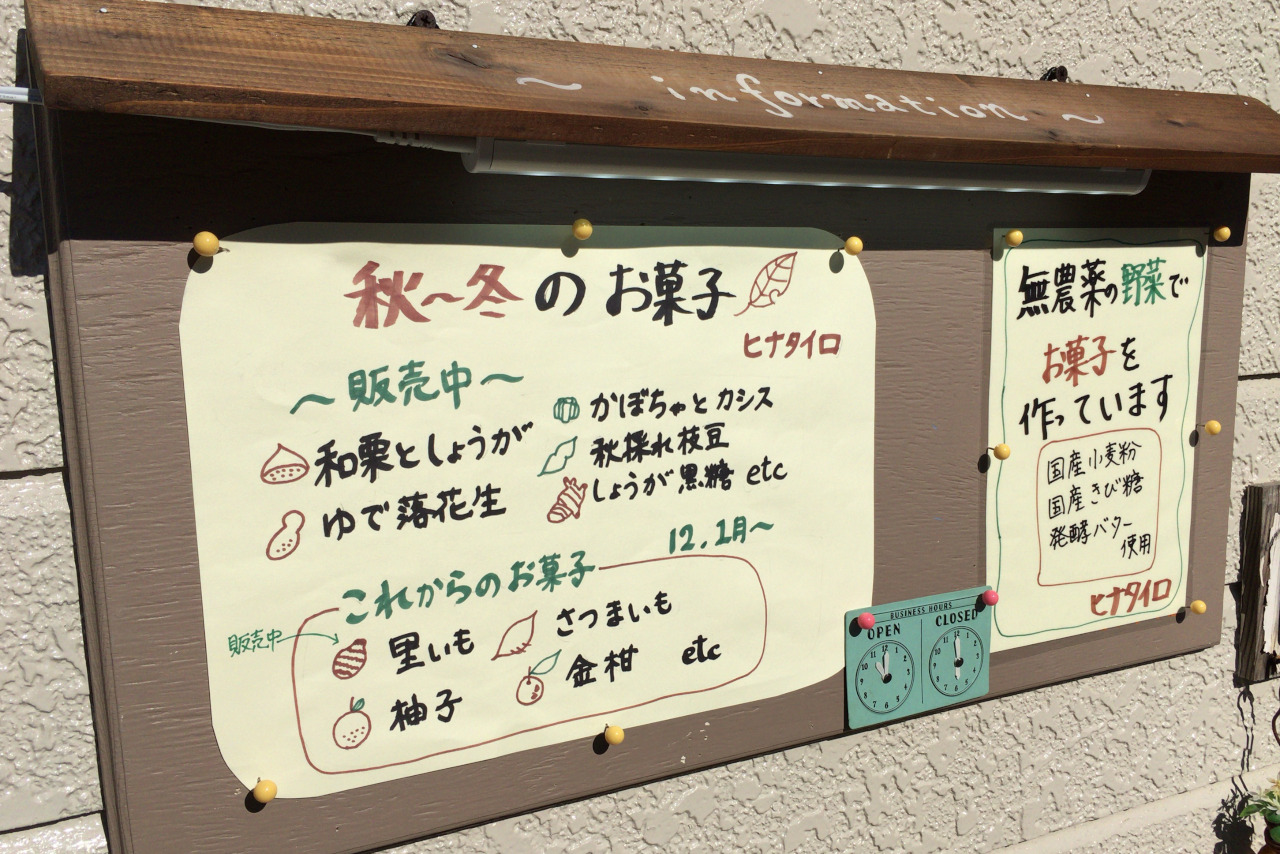 ~ information ~
秋~冬のお菓子
ヒナタイロ
~販売中~
和栗としょうが
ゆで落花生
かぼちゃとカシス
秋採れ枝豆
しょうが黒糖 etc
12.1月~
これからのお菓子
販売中
里いも
さつまいも
柚子
金柑 etc
無農薬の野菜で
お菓子を
作っています
国産小麦粉
国産きび糖
発酵バター
使用
ヒナタイロ
BUSINESS HOURS
OPEN
CLOSED